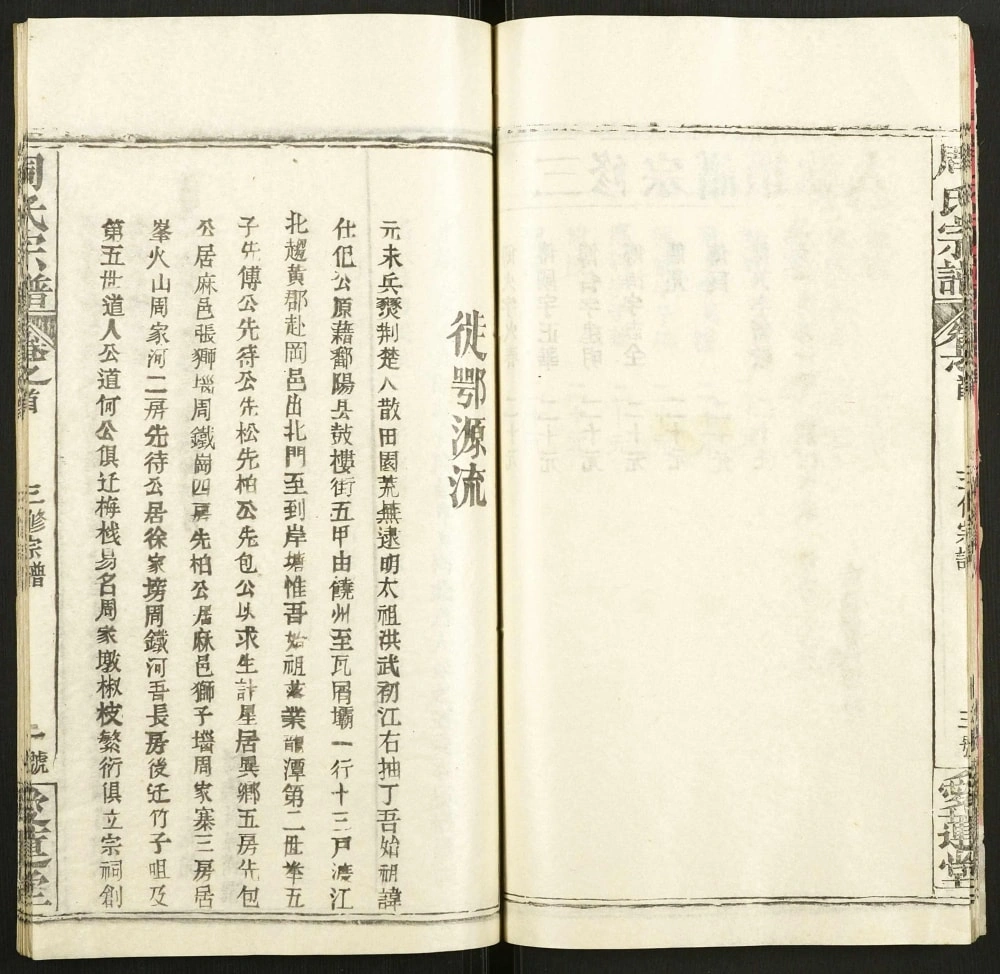 周氏宗譜
卷之首
三修宗譜
三號
愛蓮堂
徙鄂源流
元末兵燹荆楚人散田園荒蕪逮明太祖洪武初江右抽丁吾始祖諱
仕伲公原藉鄱陽县鼓樓街五甲由饒州至瓦屑壩一行十三戸渡江
北趨黄郡赴岡邑出北門至到岸塘惟吾始祖落業龍潭第二世举五
子先傅公先待公先松先柏公先包公以求生計星居異鄉五房先包
公居麻邑張獅塆周鐵崗四房先柏公居麻邑獅子墻周家寨三房居
峯火山周家河二房先待公居徐家塝周鐵河吾長房後迁竹子咀及
第五世道人公道何公俱迁梅栈易名周家墩椒枝繁衍俱立宗祠創
周氏宗譜
卷之首
三修宗譜
一號
愛蓮堂